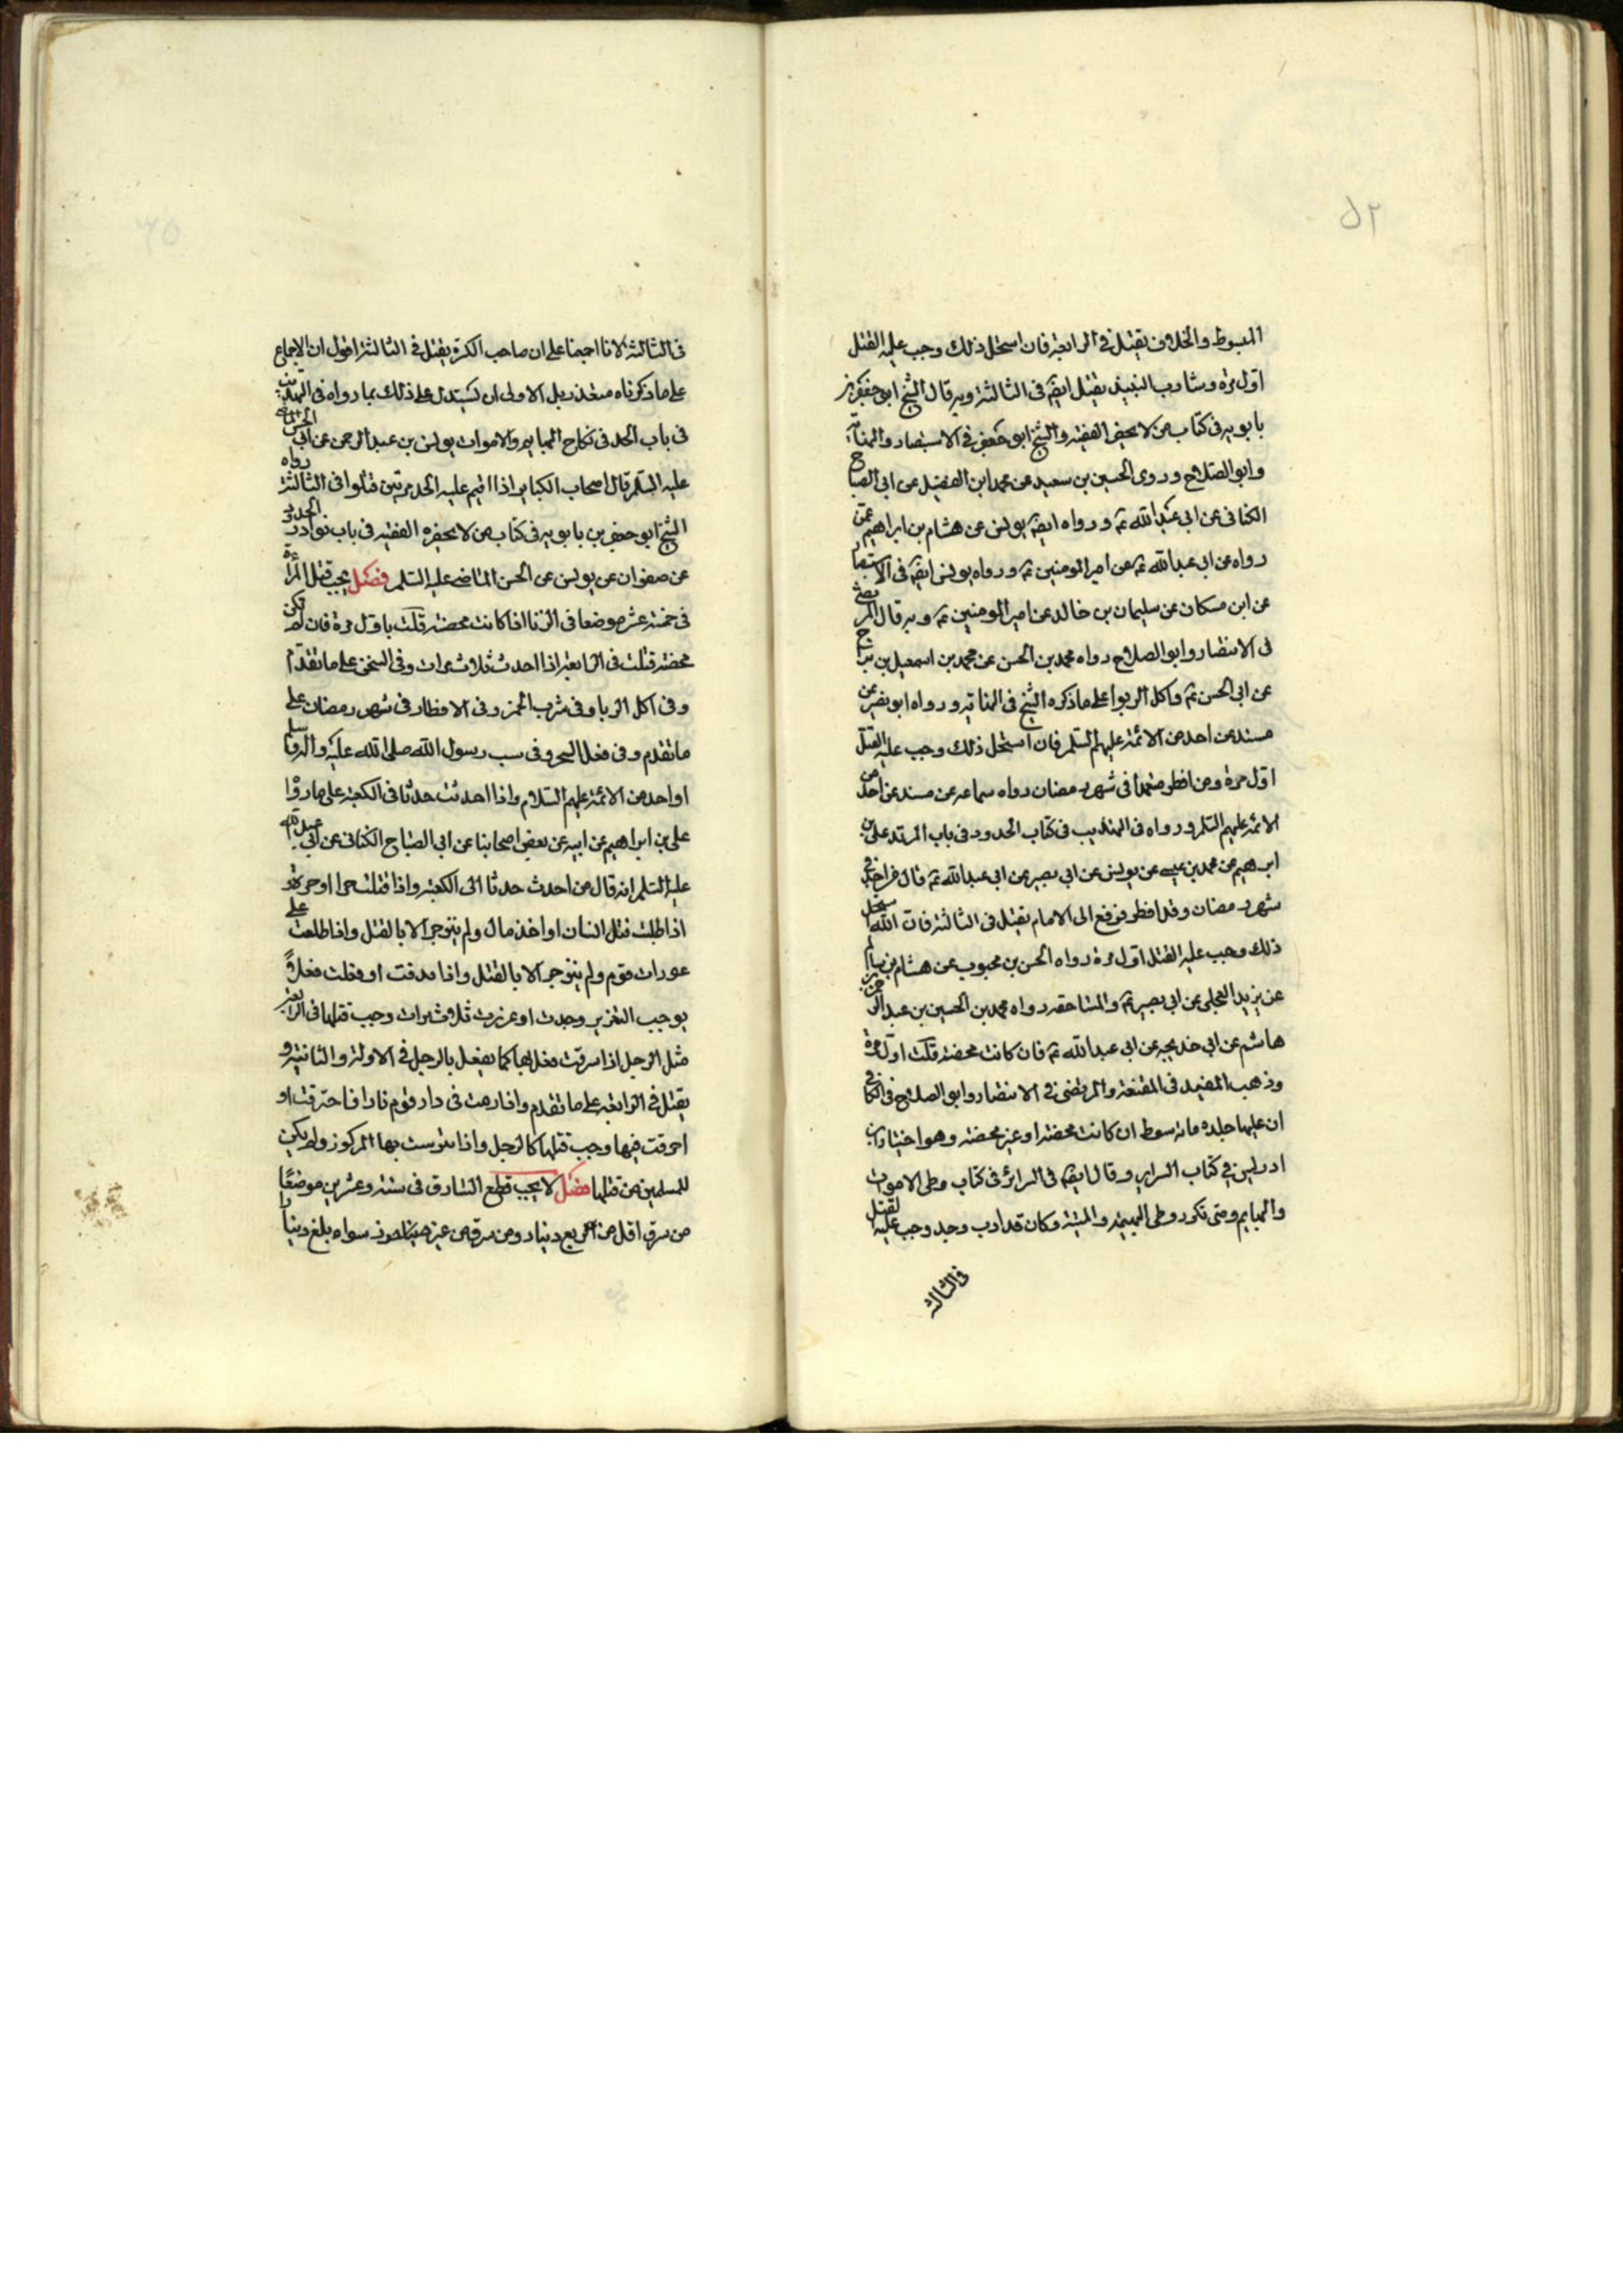 المبسوط والخلاف يقتل في الرابعة فان استحل ذلك وجب عليه القتل
اول مرة وشارب النبيذ يقتل ايضه في الثالثة وبه قال الشيخ ابو جعفر بن
بابويه في كتاب من لا يحضر الفقيه والشيخ ابو جعفر في الاستبصار والنهاية
وابو الصلاح وروى الحسين بن سعيد عن محمد ابن الفضيل عن ابي الصباح
الكناني عن ابي عبد الله ع ورواه ايضه يونس عن هشام بن ابراهيم عمن
رواه عن ابي عبد الله ع عن امير المومنين ع ورواه يونس ايضه في الاستبصار
عن ابن مسكان عن سليمان بن خالد عن امير المومنين ع وبه قال المرتضى
في الانتصار وابو الصلاح رواه محمد بن الحسن عن محمد بن اسمعيل بن بزيع
عن ابي الحسن ع واكل الربوا على ماذكره الشيخ في النهاية ورواه ابو بصير عن
مسند عن احد من الائمة عليهم السلم فان استحل ذلك وجب عليه القتل
اول مرة ومن افطر متعمدا في شهر رمضان رواه سماعه عن مسند عن احد من
الائمة عليهم السلم ورواه في التهذيب في كتاب الحدود في باب المرتد على بن
ابرهيم عن محمد بن عيسى عن يونس عن ابي بصير عن ابي عبد الله ع قال من اخذ في
شهر رمضان وقد افطر فرفع الى الامام يقتل في الثالثة فان استحل
ذلك وجب عليه القتل اول مرة رواه الحسن بن محبوب عن هشام بن سالم
عن يزيد العجلي عن ابي بصير ع والمساحقه رواه محمد بن الحسين بن عبد الرحمن
هاشم عن ابي خديجه عن ابي عبد الله ع فان كانت محصنة قتلت اول مرة
وذهب المفيد في المقنعة والمرتضى في الانتصار وابو الصلاح في الكافي
ان عليها جلده مائة سوط ان كانت محصنة او غير محصنة وهو اختيار ابن
ادريس في كتاب السراير وقال ايضه في السرائر في كتاب وطى الاموات
والبهايم ومتى تكرر وطى البهيمة والميتة وكان قد ادب وحد وجب عليه القتل
في الثالثه
في الثالثة لانا اجمعنا على ان صاحب الكبيرة يقتل في الثالثة اقول ان الاجماع
على ماذكرناه متعذر بل الاولى ان يستدل على ذلك بما رواه في التهذيب
في باب الحد في نكاح البهايم والاموات يونس بن عبد الرحمن عن ابي الحسن الماضى
عليه السلم قال اصحاب الكبائر اذا اقيم عليهم الحد مرتين قتلوا في الثالثة رواه
الشيخ ابو جعفر بن بابويه في كتاب من لا يحضره الفقيه في باب نوادر الحدود
عن صفوان عن يونس عن الحسن الماضى عليه السلم فصل يجب قتل المراة
في خمسة عشر موضعا في الزنا اذا كانت محصنة قتلت باول مرة فان لم تكن
محصنة قتلت في الرابعة اذا احدث ثلاث مرات وفي السحق على ماتقدم
وفي اكل الربا وفي شرب الخمر وفي الافطار في شهر رمضان على
ماتقدم وفي فعل السحر وفي سب رسول الله صلى الله عليه واله وسلم
او احد من الائمة عليهم السلام واذا احدثت حدثا في الكعبة على مارواه
على بن ابراهيم عن ابيه عن بعض اصحابنا عن ابي الصباح الكناني عن ابي عبد الله
عليه السلم انه قال من احدث حدثا الى الكعبة واذا قتلت حرا او حرة و
اذا طلبت قتل انسان او اخذ مال ولم ينزجر الا بالقتل واذا طلعت على
عورات قوم ولم ينزجر الا بالقتل واذا سرقت او فعلت فعلا
يوجب التعزير وحدت او عزرت ثلاث مرات وجب قتلها في الرابعة
مثل الرجل اذا سرقت فعل بها كما يفعل بالرجل في الاولة والثانية و
يقتل في الرابعة على ماتقدم واذا رمت في دار قوم نارا فاحترقت او
احرقت فيها وجب قتلها كالرجل واذا تترست بها المركوز ولم يكن
للمسلمين من قتلها فصل لا يجب قطع السارق في ستة وعشرين موضعا
من سرق اقل من ربع دينار ومن سرق من غير حرز سواه بلغ دينارا